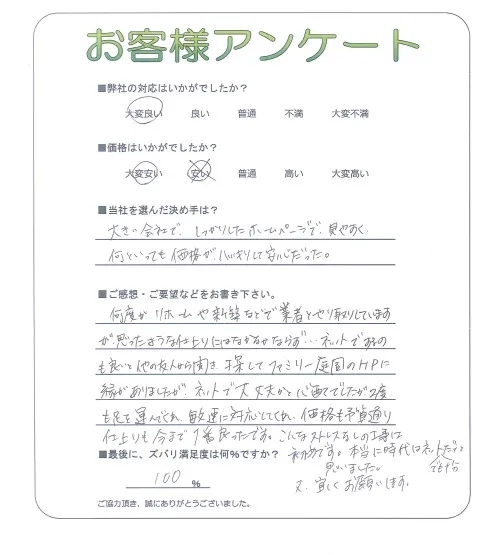 お客様アンケート
■弊社の対応はいかがでしたか？
大変良い 良い 普通 不満 大変不満
■価格はいかがでしたか？
大変安い 安い 普通 高い 大変高い
■当社を選んだ決め手は？
大きい会社で、しっかりしたホームページで、見やすく
何といっても価格がハッキリして安心だった。
■ご感想・ご要望などをお書き下さい。
何度かリホームや新築などで業者とやり取りしています
が、思ったような仕上りにはなかなかならず…ネットでするの
も良いと他の友人から聞き、探してファミリー庭園のHPに
縁がありましたが、ネットで大丈夫かと心配でしたが2度
も足を運んでくれ、敏速に対応してくれ、価格も予算通り
仕上りも今まで1番良かったです。こんなストレスなしの工事は
■最後に、ズバリ満足度は何%ですか？ 初めてです。本当に時代はネットだけでも十分
思いました。
100 % 又、宜しくお願いします。
ご協力頂き、誠にありがとうございました。